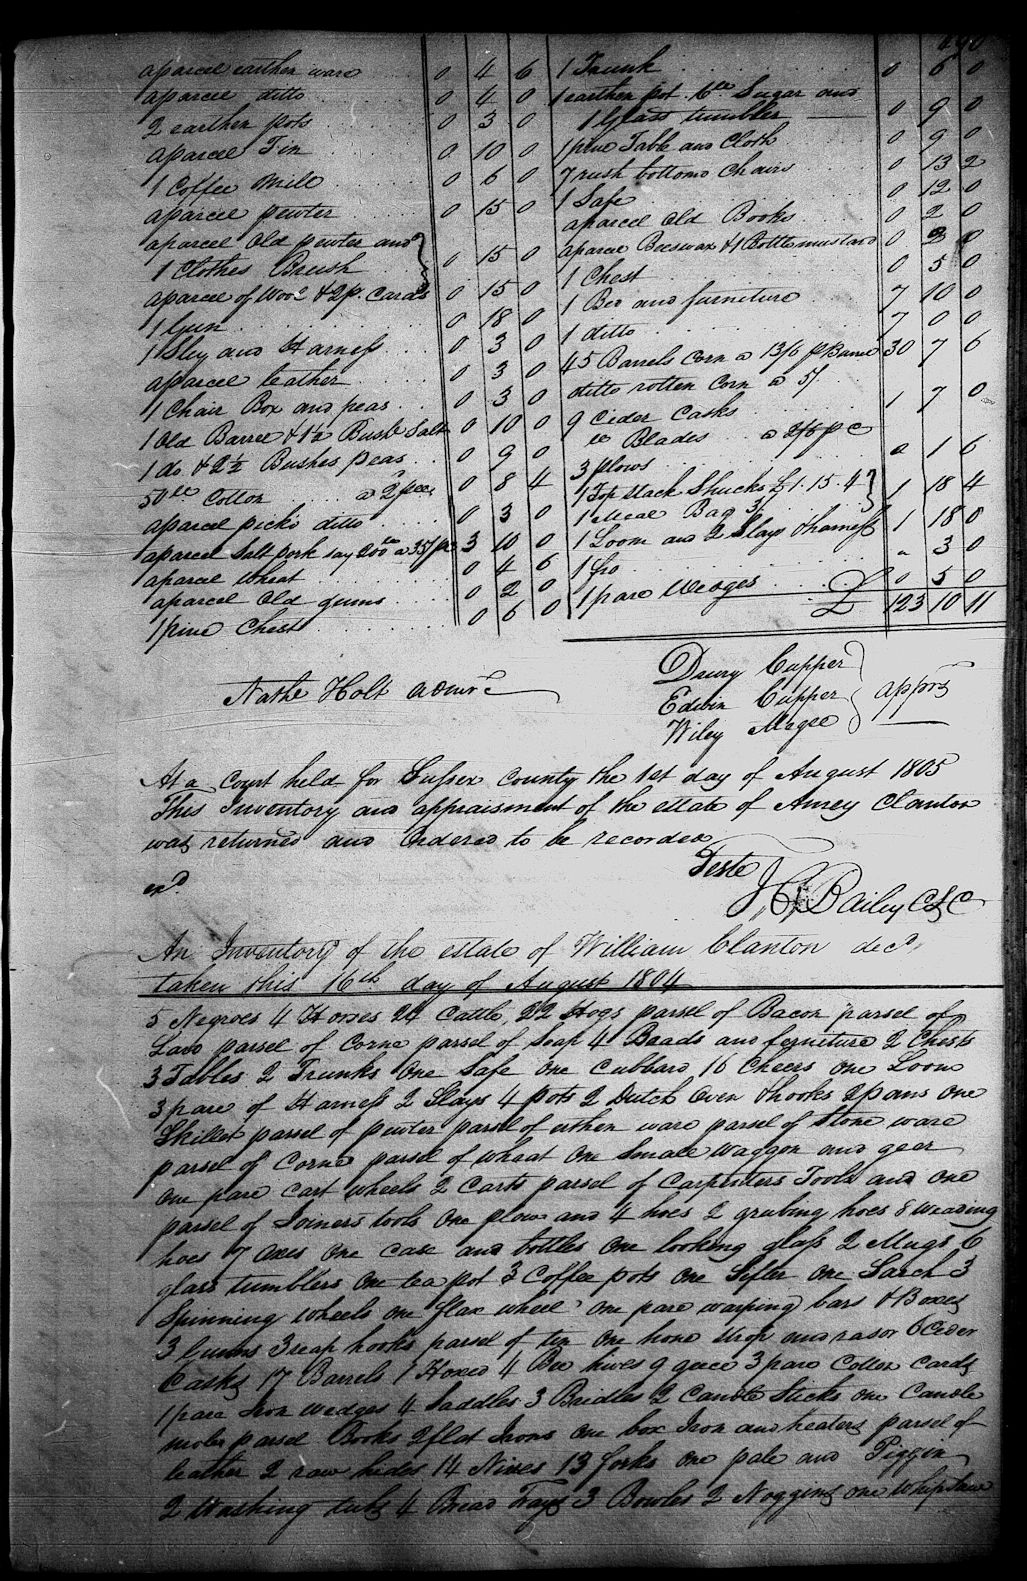 aparcel earthen ware 0 4 6
aparcel ditto 0 4 0
2 earthen pots 0 3 0
aparcel Tin 0 10 0
1 Coffee Mill 0 6 0
aparcel pewter 0 15 0
aparcel Old pewter and
1 Clothes Brush 0 15 0
aparcel of Wool & 2 p. Cards 0 15 0
1 Gun 0 18 0
1 Sley and Harness 0 3 0
aparcel leather 0 3 0
1 Chair Box and peas 0 3 0
1 Old Barrel & 1½ Bush Salt 0 10 0
1 do & 2½ Bushes peas 0 9 0
50 lb Cotton a 2d pee 0 8 4
aparcel pick'd ditto 0 3 0
aparcel Salt pork say 200 lb a 35/ 3 10 0
aparcel Wheat 0 4 6
aparcel Old gums 0 2 0
1 pine Chest 0 6 0
1 Trunk 0 6 0
1 earthen pot 6 lb Sugar and
1 Glass tumbler 0 9 0
1 pine Table and Cloth 0 9 0
7 rush bottomd Chairs 0 13 2
1 Safe 0 12 0
aparcel Old Books 0 2 0
aparcel Beeswax & 1 Bottle mustard 0 3
1 Chest 0 5 0
1 Bed and furniture 7 10 0
1 ditto 7 0 0
45 Barrels Corn a 13/6 p Barrel 30 7 6
ditto rotten Corn a 5/
9 Cider Casks 1 7 0
Blades a p C
3 plows 1 6
1 Top stack Shucks £1.15.4
1 Meal Bag 3/ 1 18 4
1 Loom and 2 Slays & harness 1 18 0
1 fro 3 0
1 pare Wedges 0 5 0
£ 123 10 11
Nathl Holt admr
Drury Cupper
Edwin Cupper
Wiley Magee
apprs
At a Court held for Sussex County the 1st day of August 1805
This Inventory and appraisment of the estate of Amey Clanton
was returned and Ordered to be recorded
Teste
exd.
J, C, Bailey CSC
An Inventory of the estate of William Clanton decd.
taken this 16th day of August 1804
5 Negroes 4 Horses 24 Cattle, 22 Hogs parsel of Bacon parsel of
Lard parsel of Corne parsel of Soap 4 Beads and ferniture 2 Chests
3 Tables 2 Trunks One Safe one Cubbard 16 Cheers one Loom
3 pare of Harness 2 Slays 4 pots 2 Dutch Oven & hooks 2 pans one
Skillet parsel of pewter parsel of erthen ware parsel of Stone ware
parsel of Corne parsel of wheat One Small Waggon and geer
One pare Cart Wheels 2 Carts parsel of Carpenters Tools and one
parsel of Joiners tools One plow and 4 hoes 2 grubing hoes 8 weading
hoes 7 axes One Case and bottles one looking glass 2 Mugs 6
glass tumblers One tea pot 3 Coffee pots one Sifter one Sarch 3
Spinning wheels one flax wheel one pare warping bars & Boxes
3 Gunns 3 reap hooks parsel of tin One hone strop and rasor 6 Cider
Casks 17 Barrels 1 4 Bee hives 9 geee 3 pare Cotton Cards
1 pare Iron wedges 4 Saddles 3 Bridles 2 Candle Sticks one Candle
moler parsel Books 2 flat Irons one box Iron and heaters parsel of
leather 2 raw hides 14 Nives 13 forks one pale and Piggin
2 Washing tubs 4 Bread Trays 3 Bowles 2 Noggins one Whipsaw